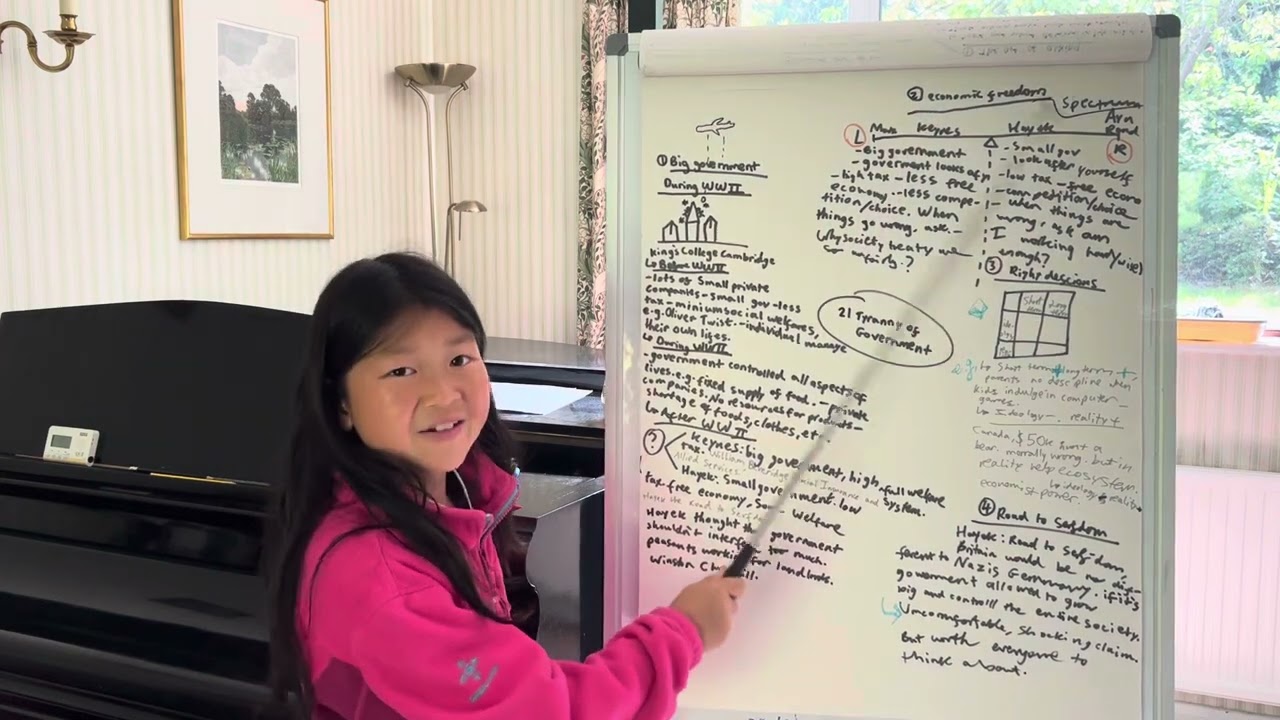 ① Big government
During WW II
King's College Cambridge
↳ Before WW II
- lots of small private
companies - small gov - less
tax - minium social welfares,
e.g. Oliver Twist - individual manage
their own lifes.
↳ During WW II
- government controlled all aspects of
lives. e.g. fixed supply of food. - private
companies. No resources for products -
shortage of foods, clothes, et
↳ After WW II
? Keynes: big government, high
tax. full welfare
system.
Hayek: Small government. low
tax. free economy, some welfare
Hayek thought the government
shouldn't interfere too much.
peasants working for landlords.
Winston
② economic freedom
Spectrum
L Marx Keynes Hayek Ayn
Rand R
- Big government
- goverment looks af
- high tax - less free
economy - less compe-
tition/choice. When
things go wrong, ask -
Why society
so unfairly?
- Small gov
- look after yourself
- low tax - free econo
- competition/choice
- when things are
wrong, ask am
I working hard/wise)
enough?
21 Tyranny of
Government
③ Right descions
Short
e.g.
parents no descipline when
kids indulge in computer -
games.
↳ Ideology -, reality +
Canada, $50k hunt a
bear. morally wrong. but in
reality help ecosystem.
economist power
④ Road to Serfdom
Hayek: Road to
Britain would be no dif-
ferent to Nazis Germany. if it's
government allowed to grow
big and controll the entire society.
Uncomfortable, Shocking claim.
But worth everyone to
think about.